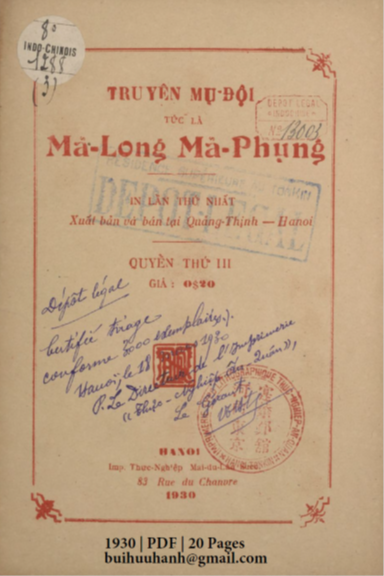 8°
INDO-CHINOIS
1288
(3)
TRUYỆN MỤ ĐỘI
TỨC LÀ
DEPOT LEGAL
INDOCHINE
N° 13003
Mã-Long Mã-Phụng
RÉSIDENCE SUPÉRIEURE AU TONKIN
DEPOT LEGAL
IN LẦN THỨ NHẤT
Xuất bản và bán tại Quảng-Thịnh — Hanoi
QUYỂN THỨ III
GIÁ : 0$20
Dépôt légal
Certifié tirage
conforme 3000 exemplaires).
Hanoi, le 28 1930
P. Le Directeur de l'Imprimerie
« Thực-Nghiệp
Le Gérant
HANOI
Imp. Thực-Nghiệp Mai-du-Lân
83 Rue du Chanvre
1930
1930 | PDF | 20 Pages
buihuuhanh@gmail.com